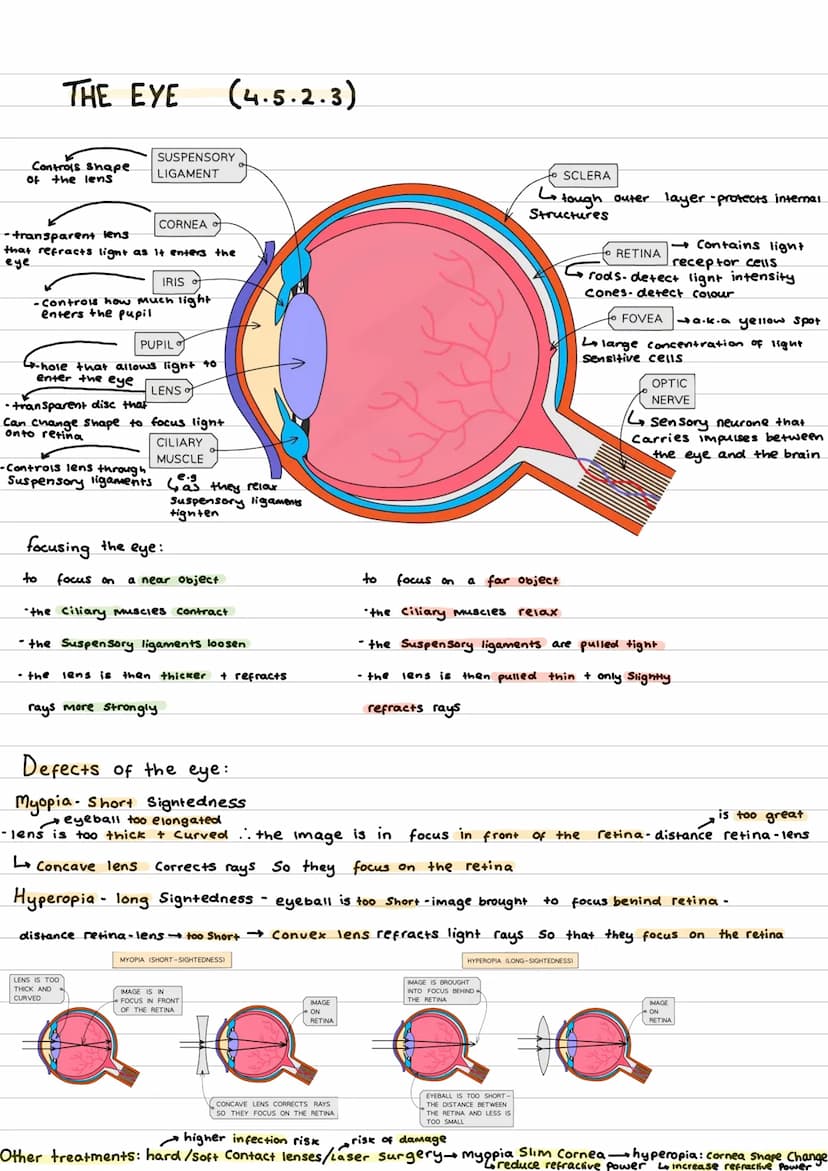 THE EYE (4.5.2.3)
SUSPENSORY
LIGAMENT
Controls shape
of the lens
CORNEA
-transparent lens
that refracts light as it enters the
eye
IRIS
-controls how much light
enters the pupil
PUPIL
hole that allows light to
enter the eye
LENS
-transparent disc that
can change shape to focus light
onto retina
CILIARY
MUSCLE
-Controls lens through
Suspensory ligaments
e.g
as they relax
suspensory ligaments
tighten
SCLERA
tough outer layer -protects internal
structures
RETINA → contains light
receptor cells
rods- detect light intensity
cones- detect colour
FOVEA → a.k.a yellow spot
large concentration of light
sensitive cells
OPTIC
NERVE
sensory neurone that
carries impulses between
the eye and the brain
focusing the eye:
to focus on a near object
-the ciliary muscles contract
-the suspensory ligaments loosen
-the lens is then thicker + refracts
rays more strongly
to focus on a far object
-the ciliary muscles relax
-the suspensory ligaments are pulled tight
-the lens is then pulled thin + only slightly
refracts rays
Defects of the eye:
Myopia- Short Sightedness
→ eyeball too elongated
is too great
-lens is too thick + curved ∴ the image is in focus in front of the retina- distance retina-lens
↳ Concave lens corrects rays so they focus on the retina
Hyperopia - long Sightedness - eyeball is too short -image brought to focus behind retina -
distance retina-lens → too short → convex lens refracts light rays so that they focus on the retina
MYOPIA (SHORT-SIGHTEDNESS)
HYPEROPIA (LONG-SIGHTEDNESS)
LENS IS TOO
THICK AND
CURVED
IMAGE IS IN
FOCUS IN FRONT
OF THE RETINA
IMAGE
ON
RETINA
CONCAVE LENS CORRECTS RAYS
SO THEY FOCUS ON THE RETINA
IMAGE IS BROUGHT
INTO FOCUS BEHIND
THE RETINA
IMAGE
ON
RETINA
EYEBALL IS TOO SHORT-
THE DISTANCE BETWEEN
THE RETINA AND LESS IS
TOO SMALL
→ higher infection risk
→ risk of damage
Other treatments: hard/soft contact lenses/laser surgery → myopia slim cornea → hyperopia: cornea shape change
↳ reduce refractive power
↳ increase refractive power